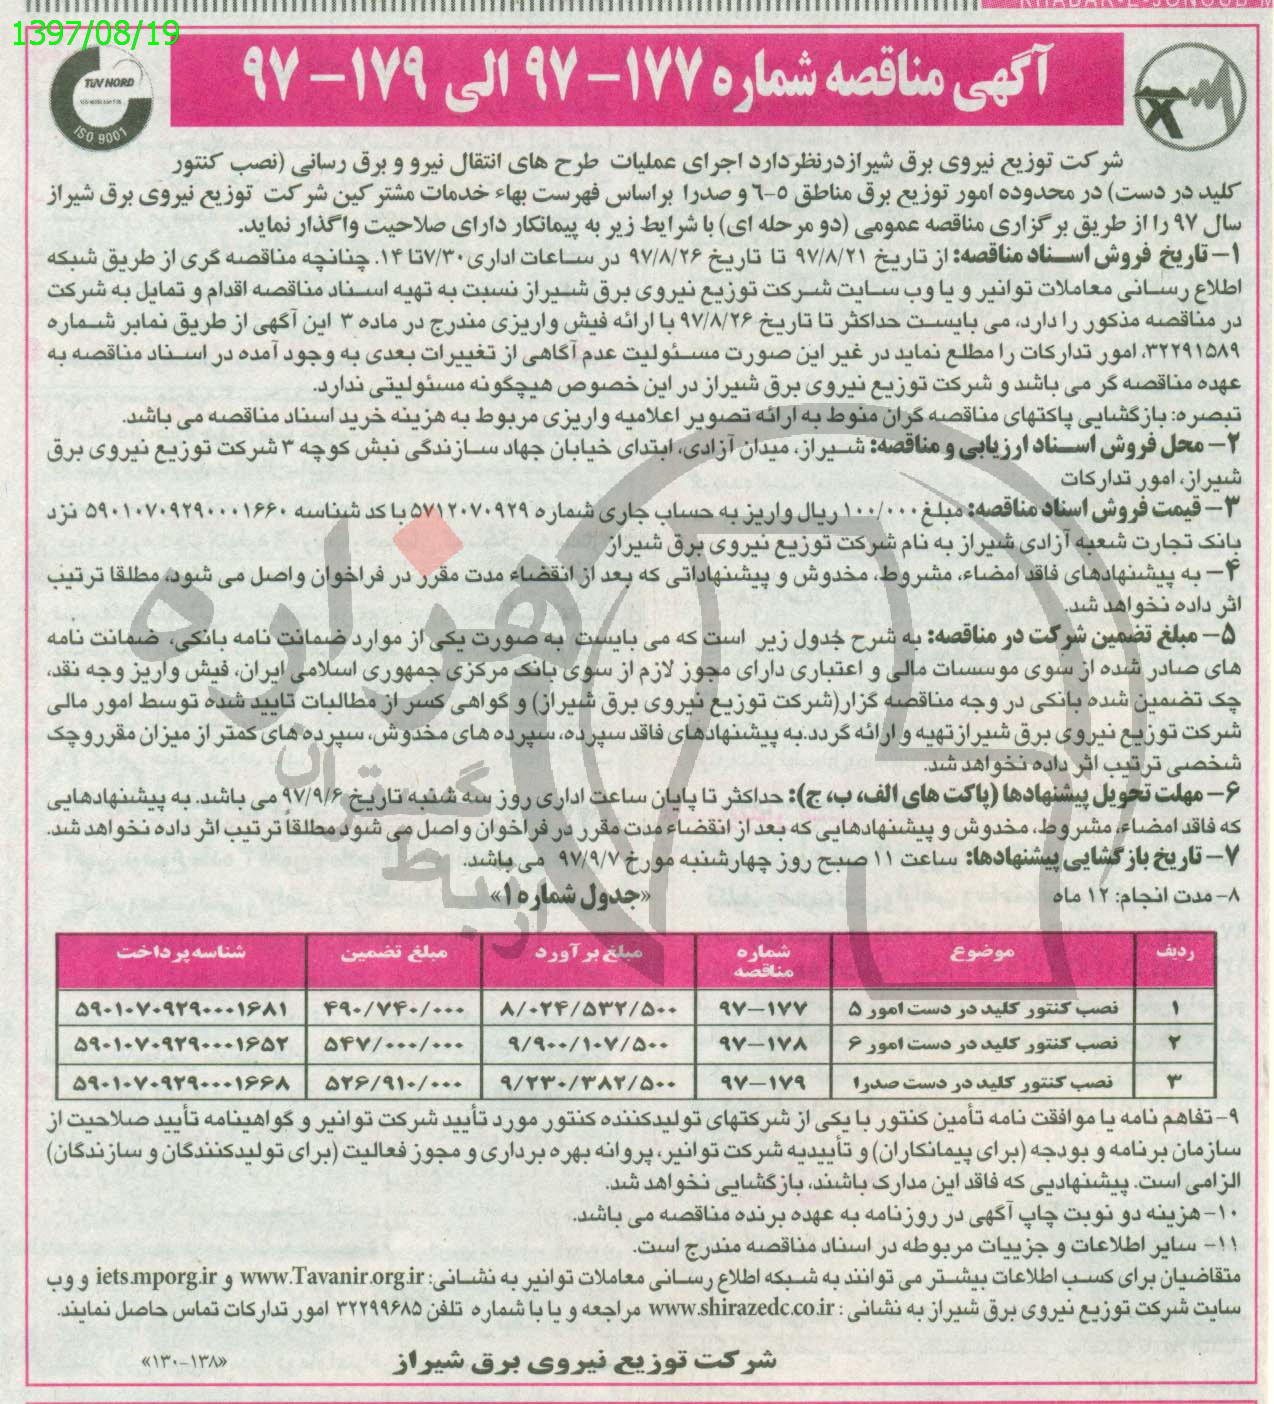 KHABAR-E-JONOUB
1397/08/19
آگهی مناقصه شماره ۱۷۷-۹۷ الی ۱۷۹-۹۷
TÜV NORD
ISO 9001
شرکت توزیع نیروی برق شیرازدرنظردارد اجرای عملیات طرح های انتقال نیرو و برق رسانی (نصب کنتور
کلید در دست) در محدوده امور توزیع برق مناطق ۵-۶ و صدرا براساس فهرست بهاء خدمات مشترکین شرکت توزیع نیروی برق شیراز
سال ۹۷ را از طریق برگزاری مناقصه عمومی (دو مرحله ای) با شرایط زیر به پیمانکار دارای صلاحیت واگذار نماید.
۱- تاریخ فروش اسناد مناقصه: از تاریخ ۹۷/۸/۲۱ تا تاریخ ۹۷/۸/۲۶ در ساعات اداری۷/۳۰تا ۱۴. چنانچه مناقصه گری از طریق شبکه
اطلاع رسانی معاملات توانیر و یا وب سایت شرکت توزیع نیروی برق شیراز نسبت به تهیه اسناد مناقصه اقدام و تمایل به شرکت
در مناقصه مذکور را دارد، می بایست حداکثر تا تاریخ ۹۷/۸/۲۶ با ارائه فیش واریزی مندرج در ماده ۳ این آگهی از طریق نمابر شماره
۳۲۲۹۱۵۸۹، امور تدارکات را مطلع نماید در غیر این صورت مسئولیت عدم آگاهی از تغییرات بعدی به وجود آمده در اسناد مناقصه به
عهده مناقصه گر می باشد و شرکت توزیع نیروی برق شیراز در این خصوص هیچگونه مسئولیتی ندارد.
تبصره: بازگشایی پاکتهای مناقصه گران منوط به ارائه تصویر اعلامیه واریزی مربوط به هزینه خرید اسناد مناقصه می باشد.
۲- محل فروش اسناد ارزیابی و مناقصه: شیراز، میدان آزادی، ابتدای خیابان جهاد سازندگی نبش کوچه ۳ شرکت توزیع نیروی برق
شیراز، امور تدارکات
۳- قیمت فروش اسناد مناقصه: مبلغ ۱۰۰/۰۰۰ ریال واریز به حساب جاری شماره ۵۷۱۲۰۷۰۹۲۹ با کد شناسه ۵۹۰۱۰۷۰۹۲۹۰۰۰۱۶۶۰ نزد
بانک تجارت شعبه آزادی شیراز به نام شرکت توزیع نیروی برق شیراز
۴- به پیشنهادهای فاقد امضاء، مشروط، مخدوش و پیشنهاداتی که بعد از انقضاء مدت مقرر در فراخوان واصل می شود، مطلقا ترتیب
اثر داده نخواهد شد.
۵- مبلغ تضمین شرکت در مناقصه: به شرح جدول زیر است که می بایست به صورت یکی از موارد ضمانت نامه بانکی، ضمانت نامه
های صادر شده از سوی موسسات مالی و اعتباری دارای مجوز لازم از سوی بانک مرکزی جمهوری اسلامی ایران، فیش واریز وجه نقد،
چک تضمین شده بانکی در وجه مناقصه گزار(شرکت توزیع نیروی برق شیراز) و گواهی کسر از مطالبات تایید شده توسط امور مالی
شرکت توزیع نیروی برق شیرازتهیه و ارائه گردد.به پیشنهادهای فاقد سپرده، سپرده های مخدوش، سپرده های کمتر از میزان مقرروچک
شخصی ترتیب اثر داده نخواهد شد.
۶- مهلت تحویل پیشنهادها (پاکت های الف، ب، ج): حداکثر تا پایان ساعت اداری روز سه شنبه تاریخ ۹۷/۹/۶ می باشد. به پیشنهادهایی
که فاقد امضاء، مشروط، مخدوش و پیشنهادهایی که بعد از انقضاء مدت مقرر در فراخوان واصل می شود مطلقاً ترتیب اثر داده نخواهد شد.
۷- تاریخ بازگشایی پیشنهادها: ساعت ۱۱ صبح روز چهارشنبه مورخ ۹۷/۹/۷ می باشد.
۸- مدت انجام: ۱۲ ماه «جدول شماره ۱»
ردیف موضوع شماره مناقصه مبلغ برآورد مبلغ تضمین شناسه پرداخت
۱ نصب کنتور کلید در دست امور ۵ ۹۷-۱۷۷ ۸/۰۲۴/۵۳۲/۵۰۰ ۴۹۰/۷۴۰/۰۰۰ ۵۹۰۱۰۷۰۹۲۹۰۰۰۱۶۸۱
۲ نصب کنتور کلید در دست امور ۶ ۹۷-۱۷۸ ۹/۹۰۰/۱۰۷/۵۰۰ ۵۴۷/۰۰۰/۰۰۰ ۵۹۰۱۰۷۰۹۲۹۰۰۰۱۶۵۲
۳ نصب کنتور کلید در دست صدرا ۹۷-۱۷۹ ۹/۲۳۰/۳۸۲/۵۰۰ ۵۲۶/۹۱۰/۰۰۰ ۵۹۰۱۰۷۰۹۲۹۰۰۰۱۶۶۸
۹- تفاهم نامه یا موافقت نامه تأمین کنتور با یکی از شرکتهای تولیدکننده کنتور مورد تأیید شرکت توانیر و گواهینامه تأیید صلاحیت از
سازمان برنامه و بودجه (برای پیمانکاران) و تأییدیه شرکت توانیر، پروانه بهره برداری و مجوز فعالیت (برای تولیدکنندگان و سازندگان)
الزامی است. پیشنهادیی که فاقد این مدارک باشند، بازگشایی نخواهد شد.
۱۰- هزینه دو نوبت چاپ آگهی در روزنامه به عهده برنده مناقصه می باشد.
۱۱- سایر اطلاعات و جزییات مربوطه در اسناد مناقصه مندرج است.
متقاضیان برای کسب اطلاعات بیشتر می توانند به شبکه اطلاع رسانی معاملات توانیر به نشانی: www.Tavanir.org.ir و iets.mporg.ir و وب
سایت شرکت توزیع نیروی برق شیراز به نشانی : www.shirazedc.co.ir مراجعه و یا با شماره تلفن ۳۲۲۹۹۶۸۵ امور تدارکات تماس حاصل نمایند.
شرکت توزیع نیروی برق شیراز «۱۳۰-۱۳۸»
هزاره